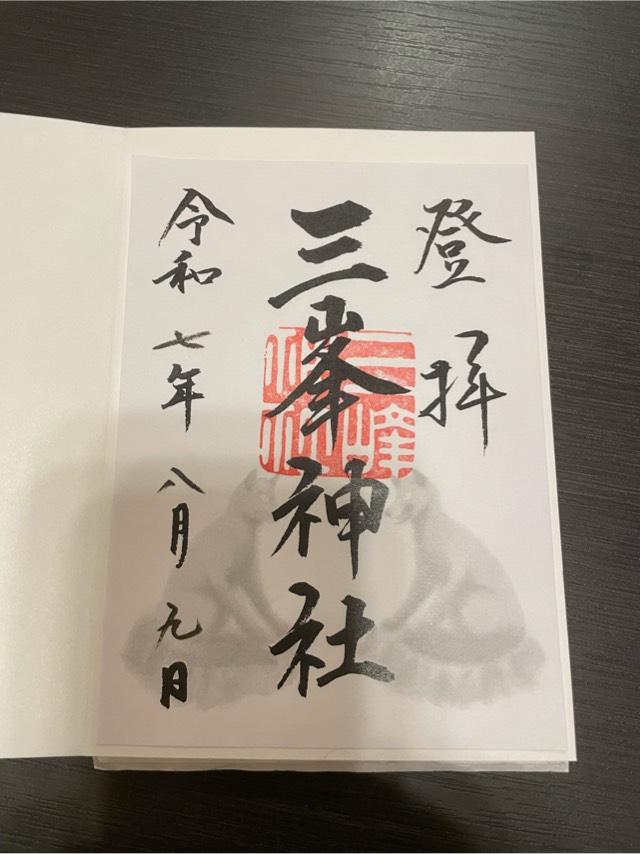 登拝
三峯神社
令和七年八月九日